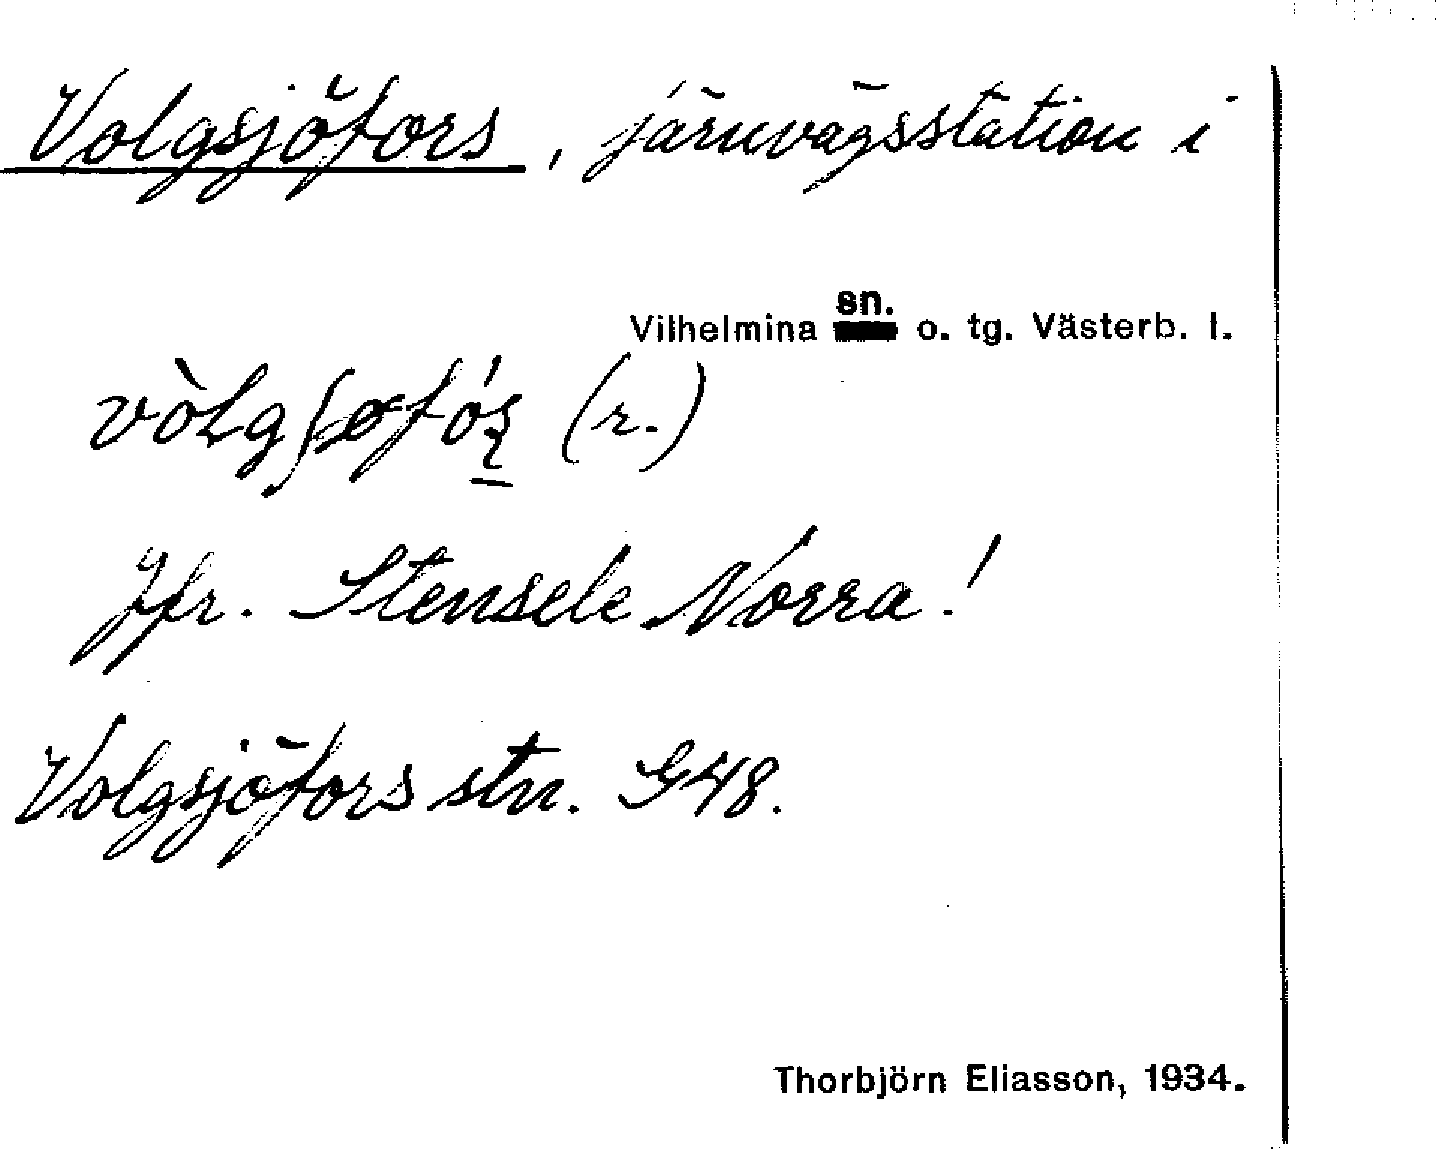 Volgsjöfors, järnvägsstation i
sn.
Vilhelmina o. tg. Västerb. l.
(r.)
Jfr. Stensele Norra!
Volgsjöfors stn. G48.
Thorbjörn Eliasson, 1934.